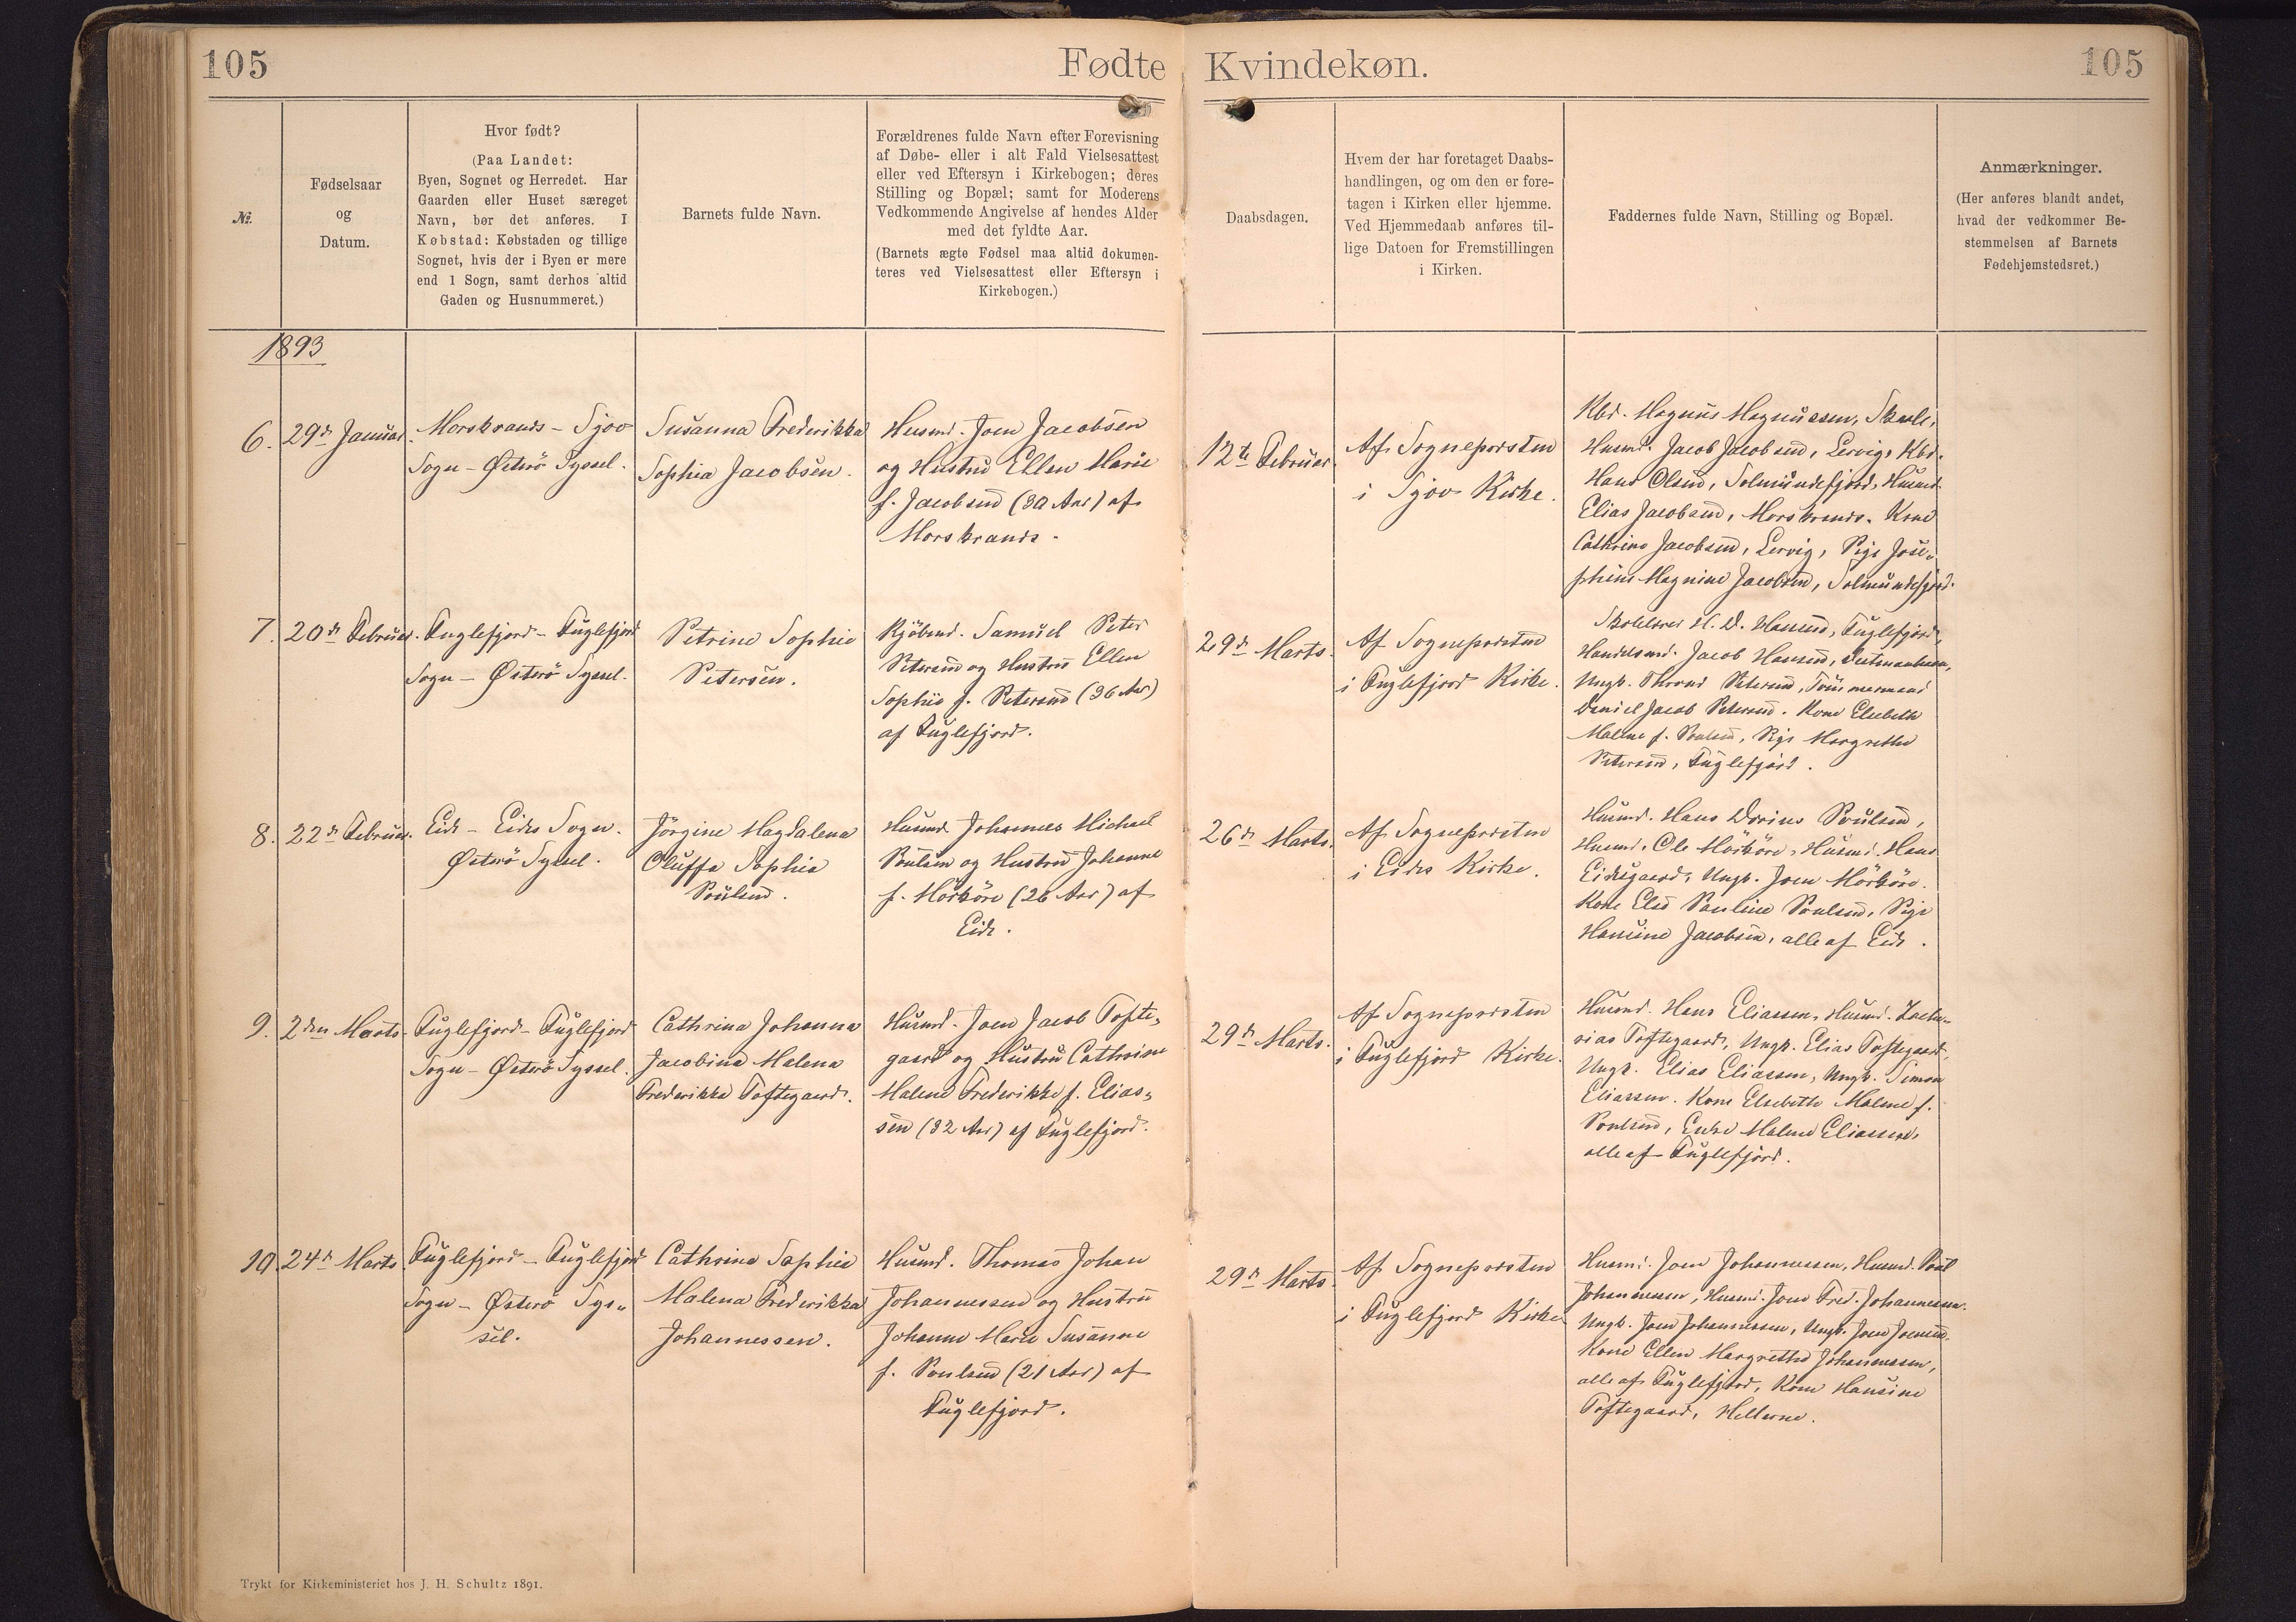 105
Fødte
Kvindekøn.
105
№.
Fødselsaar
og
Datum.
Hvor født?
(Paa Landet:
Byen, Sognet og Herredet. Har
Gaarden eller Huset særeget
Navn, bør det anføres. I
Købstad: Købstaden og tillige
Sognet, hvis der i Byen er mere
end 1 Sogn, samt derhos altid
Gaden og Husnummeret.)
Barnets fulde Navn.
Forældrenes fulde Navn efter Forevisning
af Døbe- eller i alt Fald Vielsesattest
eller ved Eftersyn i Kirkebogen; deres
Stilling og Bopæl; samt for Moderens
Vedkommende Angivelse af hendes Alder
med det fyldte Aar.
(Barnets ægte Fødsel maa altid dokumen-
teres ved Vielsesattest eller Eftersyn i
Kirkebogen.)
Daabsdagen.
Hvem der har foretaget Daabs-
handlingen, og om den er fore-
tagen i Kirken eller hjemme.
Ved Hjemmedaab anføres til-
lige Datoen for Fremstillingen
i Kirken.
Faddernes fulde Navn, Stilling og Bopæl.
Anmærkninger.
(Her anføres blandt andet,
hvad der vedkommer Be-
stemmelsen af Barnets
Fødehjemstedsret.)
1893
6.
29de Januar.
Morskranes - Sjov
Sogn - Østerö Syssel.
Susanna Frederikka
Sophia Jacobsen.
Husmd. Joen Jacobsen
og Hustru Ellen Marie
f. Jacobsen (30 Aar) af
Morskranes.
12te Februar.
Af Sognepræsten
i Sjov Kirke.
Kbd. Magnus Magnussen, Skaale,
Husmd. Jacob Jacobsen, Lervig, Kbd.
Hans Olsen, Solmundefjord, Husmd.
Elias Jacobsen, Morskranes. Kone
Cathrine Jacobsen, Lervig, Pige Jose-
phine Magnine Jacobsen, Solmundefjord.
7.
20de Februar.
Fuglefjord - Fuglefjord
Sogn - Østerö Syssel.
Petrine Sophie
Petersen.
Kjöbmd. Samuel Peter
Petersen og Hustru Ellen
Sophie f. Petersen (36 Aar)
af Fuglefjord.
29de Marts.
Af Sognepræsten
i Fuglefjord Kirke.
Skolelærer H. D. Hansen, Fuglefjord,
Handelsmd. Jacob Hansen,
Ungk. Thrond Petersen, Tömmermand
Daniel Jacob Petersen. Kone Elsebeth
Malene f. Poulsen, Pige Margrethe
Petersen, Fuglefjord.
8.
22de Februar.
Eide - Eides Sogn.
Østerö Syssel.
Jörgine Magdalena
Oluffa Sophia
Poulsen.
Husmd. Johannes Michael
Poulsen og Hustru Johanne
f. Mörköre (26 Aar) af
Eide.
26de Marts.
Af Sognepræsten
i Eides Kirke.
Husmd. Hans Dorius Poulsen,
Husmd. Ole Mörköre, Husmd. Hans
Eidesgaard, Ungk. Joen Mörköre.
Kone Else Pauline Poulsen, Pige
Hansine Jacobsen, alle af Eide.
9.
2den Marts.
Fuglefjord - Fuglefjord
Sogn - Østerö Syssel.
Cathrina Johanna
Jacobina Malena
Frederikka Toftegaard.
Husmd. Joen Jacob Tofte-
gaard og Hustru Cathrine
Malene Frederikke f. Elias-
sen (32 Aar) af Fuglefjord.
29de Marts.
Af Sognepræsten
i Fuglefjord Kirke.
Husmd. Hans Eliassen, Husmd. Zacha-
rias Toftegaard, Ungk. Elias Toftegaard,
Ungk. Elias Eliassen, Ungk. Simon
Eliassen. Kone Elsebeth Malene f.
Poulsen, Enke Malene Eliassen,
alle af Fuglefjord.
10.
24de Marts.
Fuglefjord - Fuglefjord
Sogn - Østerö Sys-
sel.
Cathrina Sophia
Malena Frederikka
Johannessen.
Husmd. Thomas Johan
Johannessen og Hustru
Johanne Marie Susanne
f. Poulsen (21 Aar) af
Fuglefjord.
29de Marts.
Af Sognepræsten
i Fuglefjord Kirke.
Husmd. Joen Johannessen, Husmd. Poul
Johannessen, Husmd. Joen Fred. Johannessen.
Ungk. Joen Johannessen, Ungk. Joen Joensen.
Kone Ellen Margrethe Johannessen,
alle af Fuglefjord, Kone Hansine
Toftegaard, Hellerne.
Trykt for Kirkeministeriet hos J. H. Schultz 1891.